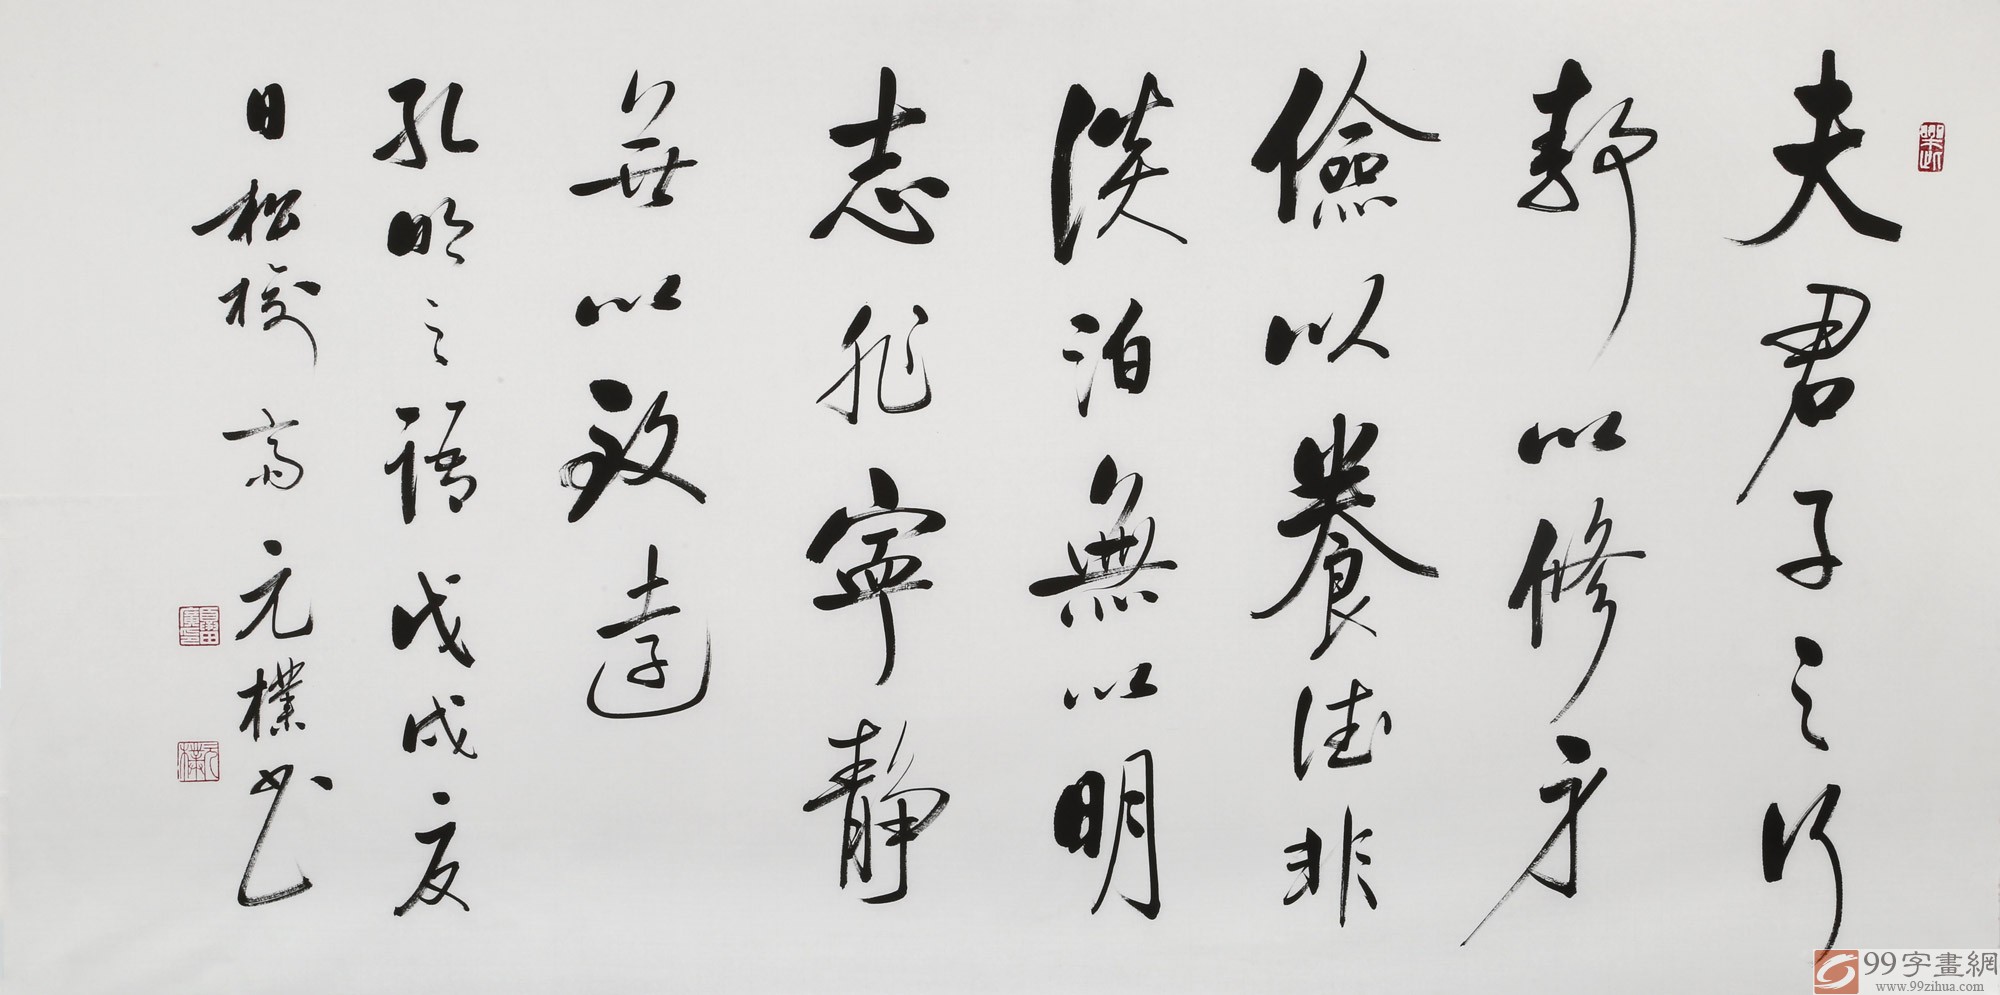 夫君子之行
靜以修身
儉以養德非
淡泊無以明
志非寧靜
無以致遠
孔明之語戊戌夏
日松樵齋元樸書
99字畫網
www.99zihua.com